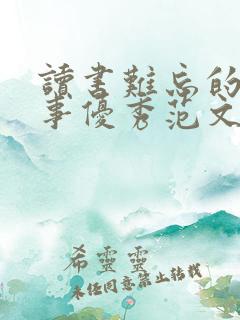 讀書難忘的
事優秀范文
希靈靈
未經同意禁止轉載